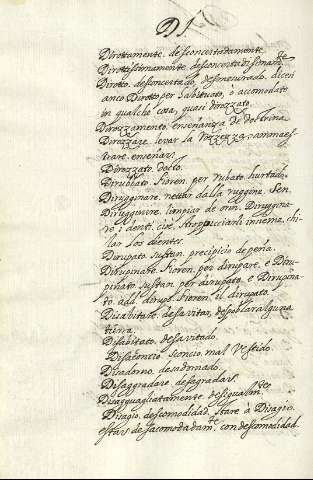 DI.
Dirottamente. desconcertadamente.
Dirottissimamente. desconcertadissimam.te
Dirotto. desconcertado, desmesurado, dicesi
anco Dirotto per habituato, ò acomodato
in qualche cosa, quasi dirozzato.
Dirozzamento. enseñanza de dotrina
Dirozzare. levar la rozzezza, ammaes
trare. enseñar.
Dirozzato. docto.
Dirubbato. Fioren. per rubato. hurtado.
Dirugginare. nettar dalla ruggine. Sen.
Dirugginire. limpiar de orin. Diruggina
re i denti, cioè, stroppicciarli insieme, chi
llar los dientes.
Dirupato. sustan. precipicio de peña.
Dirupinare. Fioren. per dirupare. e Diru
pinato. sustan. per dirupato. e Dirupina
to. add. dirup. Fioren. il dirupato.
Disabitare. desavitar, despoblar alguna
tierra.
Disabitato. desavitado.
Disaconcio. sconcio, mal vestido.
Disadorno. desadornado.
Disaggradare. desagradar.
Disagguagliatamente. desigualm.te
Disagio. descomodidad. Stare à Disagio.
estar desacomodadam.te con descomodidad.